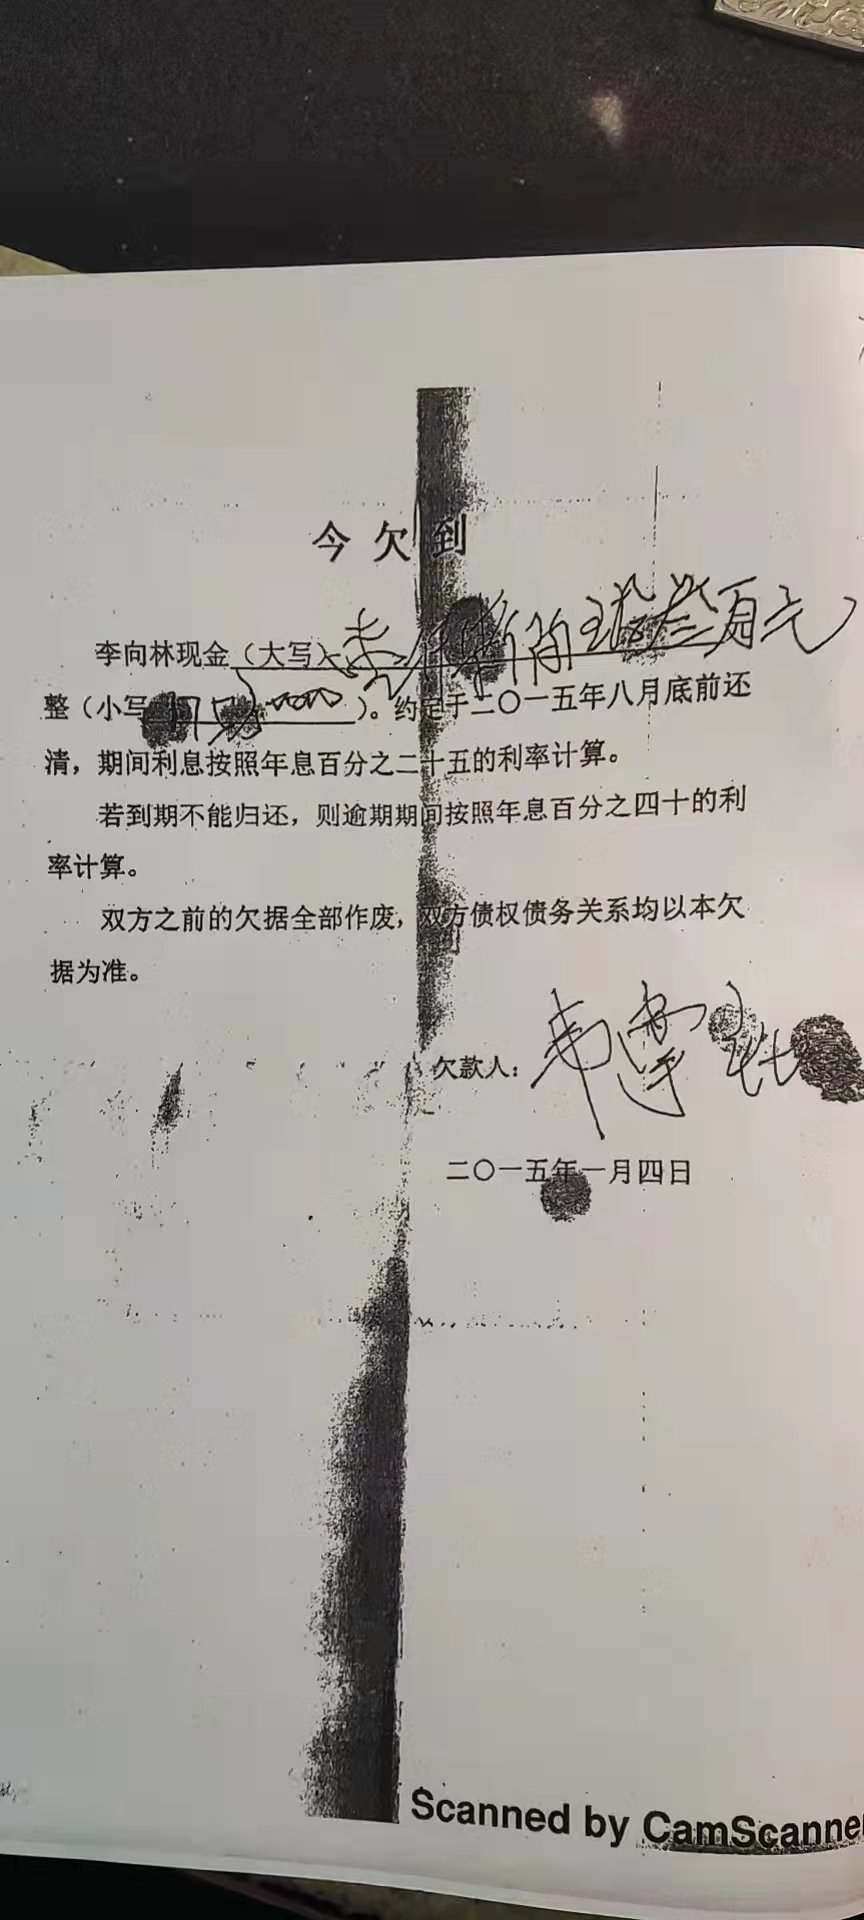 今欠到
李向林现金（大写）
整（小写）。约定于二〇一五年八月底前还
清，期间利息按照年息百分之二十五的利率计算。
若到期不能归还，则逾期期间按照年息百分之四十的利
率计算。
双方之前的欠据全部作废，双方债权债务关系均以本欠
据为准。
欠款人：
二〇一五年一月四日
Scanned by CamScanner